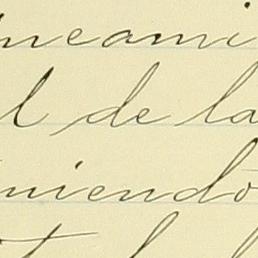 neami
l de la
niendo